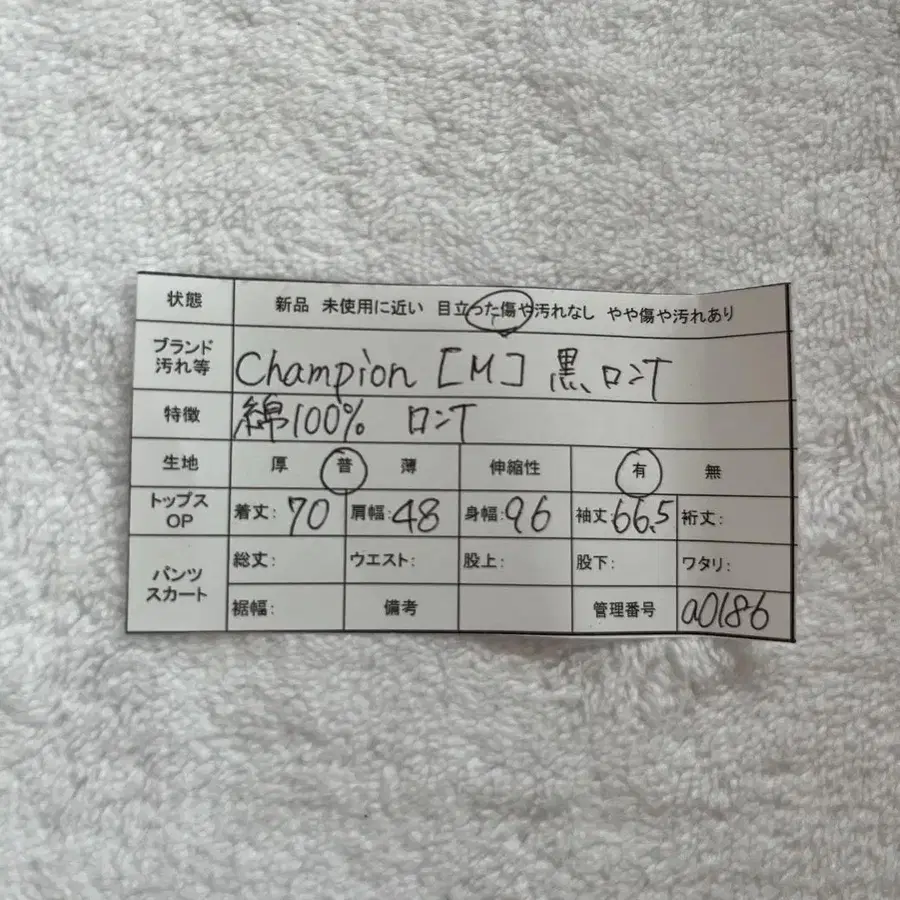 状態 新品 未使用に近い 目立った傷や汚れなし やや傷や汚れあり
ブランド
汚れ等 Champion [M] 黒ロンT
特徴 綿100% ロンT
生地 厚 普 薄 伸縮性 有 無
トップス
OP 着丈:70 肩幅:48 身幅:96 袖丈:66.5 裄丈:
パンツ
スカート 総丈: ウエスト: 股上: 股下: ワタリ:
裾幅: 備考 管理番号 a0186